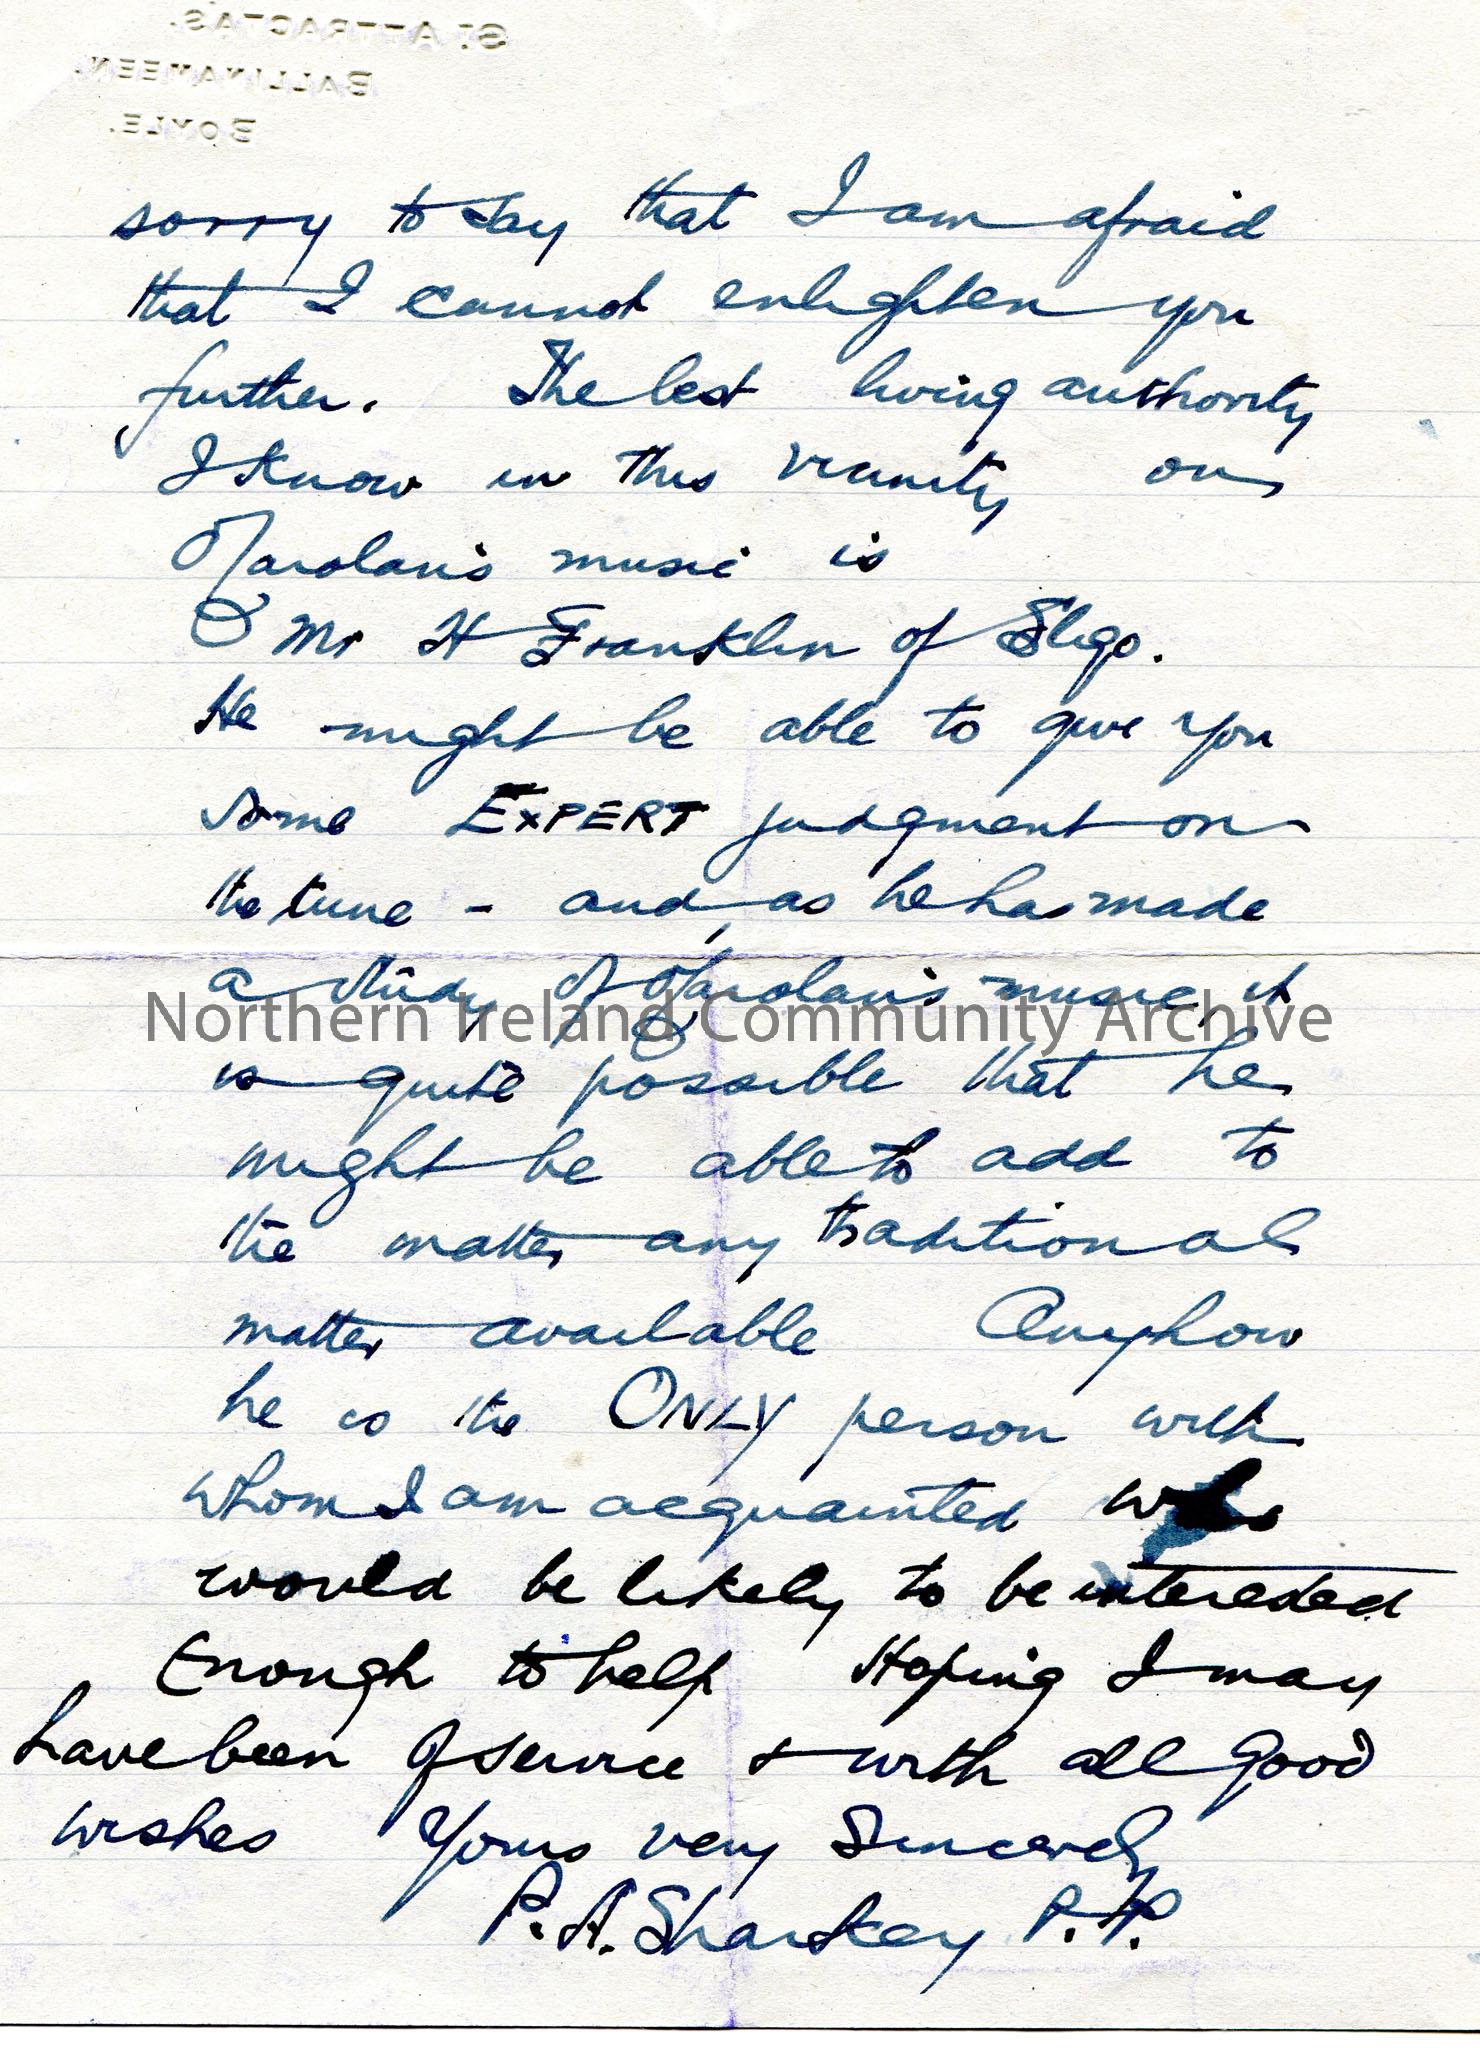 St ATTRACTA'S.
BALLINAMEEN.
BOYLE.
sorry to say that I am afraid
that I cannot enlighten you
further. The best living authority
I know in this vicinity on
O'Carolan's music is
Mr H Franklin of Sligo.
He might be able to give you
some EXPERT judgment on
the tune - and, as he has made
a study of O'Carolan's music, it
Northern Ireland Community Archive
is quite possible that he
might be able to add to
the matter any traditional
matter available Anyhow
he is the ONLY person with
whom I am acquainted who
would be likely to be interested
Enough to help Hoping I may
have been of service & with all good
wishes Yours very Sincerely
P. A. Sharkey P.P.